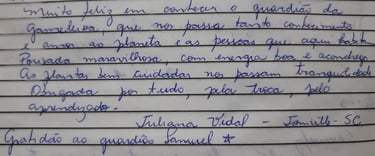 muito feliz em conhecer o guardião da
Gameleira, que nos passa tanto conhecimento
e amor ao planeta e as pessoas que aqui habitam
Pousada maravilhosa, com energia boa e aconchego
As plantas bem cuidadas nos passam tranquilidade
Obrigada por tudo, pela troca, pelo
aprendizado.
Juliana Vidal - - SC
Gratidão ao guardião Samuel